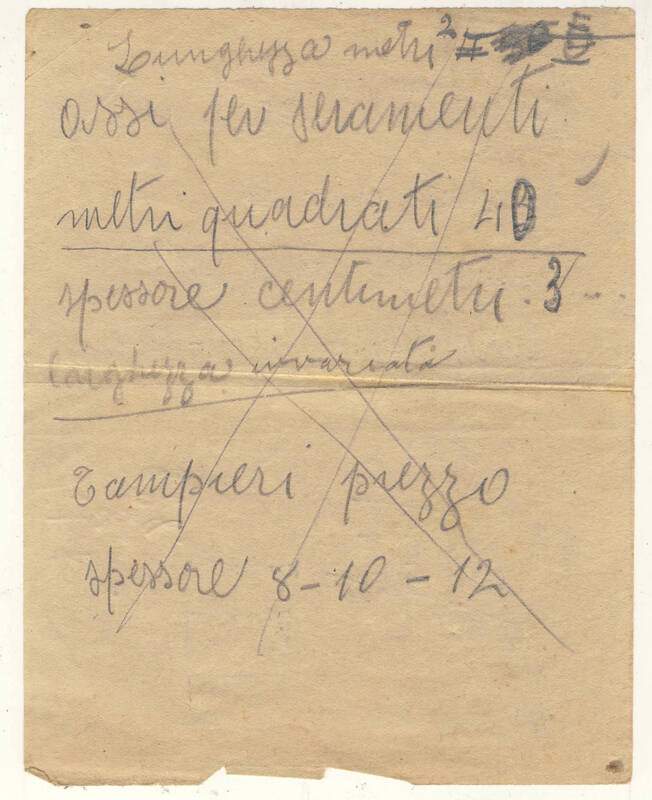 Lunghezza metri 2
assi per seramenti
metri quadrati 40
spessore centimetri . 3 - ..
larghezza invariata
Tampieri prezzo
spessore 8 - 10 - 12